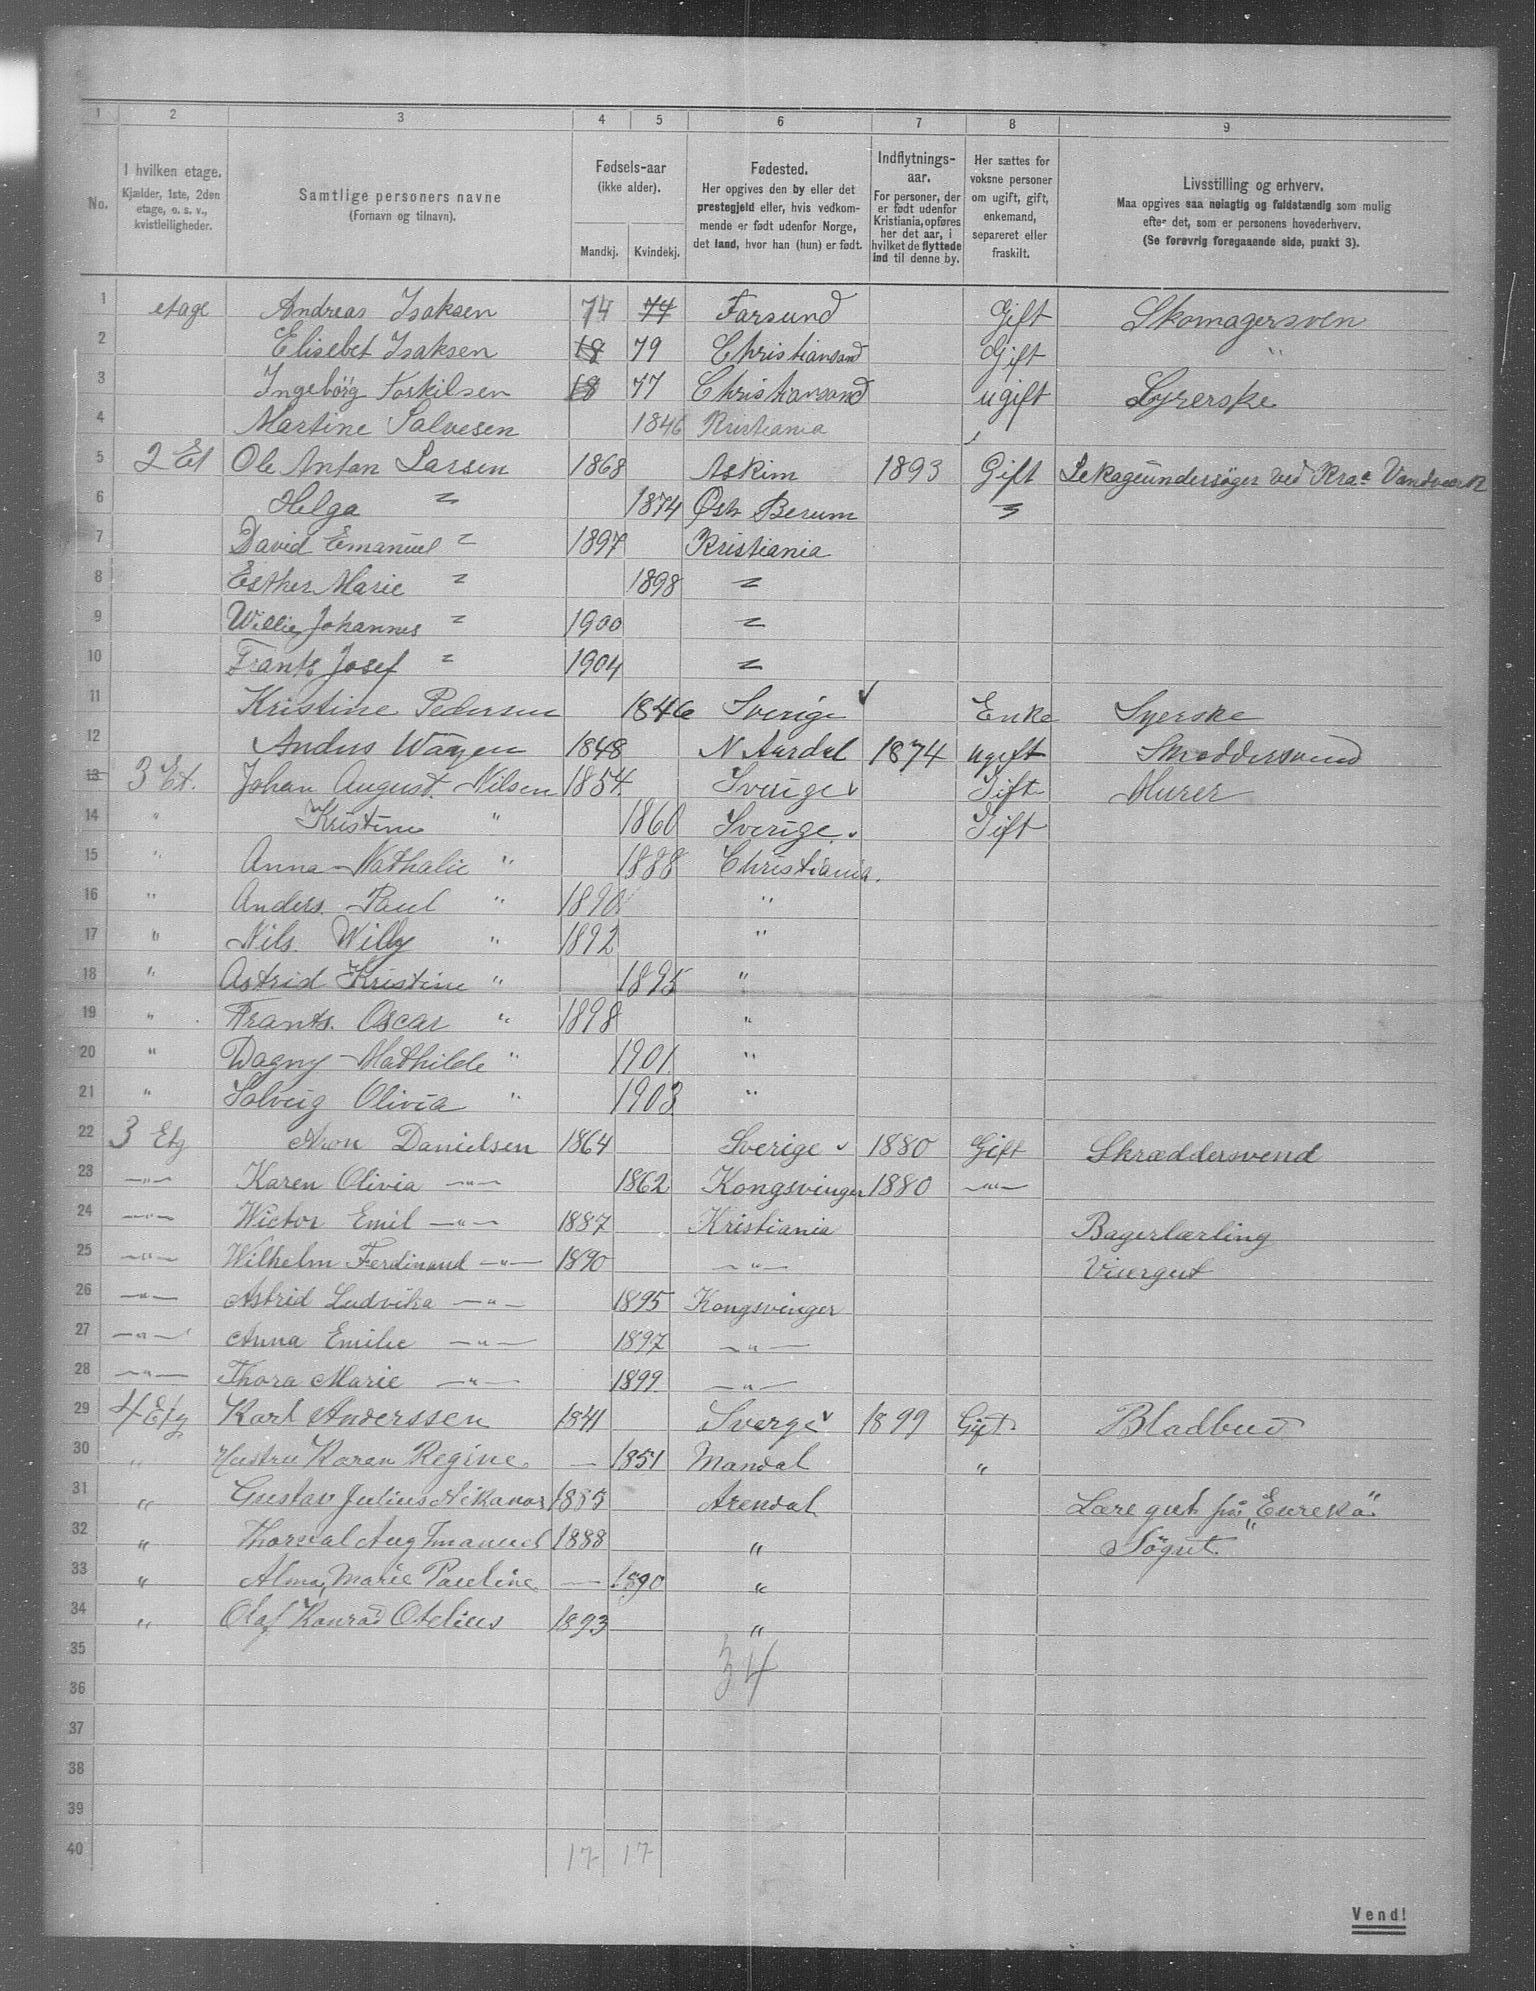 1 2 3 4 5 6 7 8 9
No.
I hvilken etage.
Kjælder, 1ste, 2den
etage, o. s. v.,
kvistleiligheder.
Samtlige personers navne
(Fornavn og tilnavn).
Fødsels-aar
(ikke alder).
Mandkj. Kvindekj.
Fødested.
Her opgives den by eller det
prestegjeld eller, hvis vedkom-
mende er født udenfor Norge,
det land, hvor han (hun) er født.
Indflytnings-
aar.
For personer, der
er født udenfor
Kristiania, opføres
her det aar, i
hvilket de flyttede
ind til denne by.
Her sættes for
voksne personer
om ugift, gift,
enkemand,
separeret eller
fraskilt.
Livsstilling og erhverv.
Maa opgives saa nøiagtig og fuldstændig som mulig
efter det, som er personens hovederhverv.
(Se forøvrig foregaaende side, punkt 3).
1 etage Andreas Isaksen 74 74 Farsund Gift Skomagersven
2 Elisebet Isaksen 18 79 Christiansand Gift "
3 Ingebörg Torkilsen 18 77 Christiansand ugift Syrerske
4 Martine Salvesen 1846 Kristiania
5 2 Et Ole Anton Larsen 1868 Askim 1893 Gift Lekageundersøger ved Kra Vandværk
6 Helga " 1874 Østr Berum "
7 David Emanuel " 1897 Kristiania
8 Esther Marie " 1898 "
9 Willie Johannes " 1900 "
10 Frants Josef " 1904 "
11 Kristine Pedersen 1846 Sverige Enke Syerske
12 Andus 1848 N Aurdal 1874 ugift Skreddersvend
13 3 Et. Johan August. Nilsen 1854. Sverige Gift Murer
14 " Kristine " 1860 Sverige. Gift
15 " Anna Nathalie " 1888 Christiania.
16 " Anders. Paul " 1890 "
17 " Nils. Willy " 1892 "
18 " Astrid Kristine " 1895 "
19 " Frants. Oscar " 1898 "
20 " Dagny Mathilde " 1901. "
21 " Solveig Olivia " 1903 "
22 3 Etg Aron Danielsen 1864 Sverige 1880 Gift Skræddersvend
23 —"— Karen Olivia —"— 1862 Kongsvinger 1880 —"—
24 —"— Wictor Emil —"— 1887 Kristiania Bagerlærling
25 —"— Wilhelm Ferdinand —"— 1890 —"— Visergut
26 —"— Astrid Ludvika —"— 1895 Kongsvinger
27 —"— Anna Emilie —"— 1897 —"—
28 —"— Thora Marie —"— 1899 —"—
29 4 Etg Karl Anderssen 1841 Sverge 1899 Gift Bladbud
30 " Hustru Karen Regine. — 1851 Mandal "
31 " Gustav Julius Nikanor 1885 Arendal Læregut på "Eureka"
32 " Thorval Aug Imanuel 1888 " Søgut
33 " Alma, Marie Pauline — 1890 "
34 " Olaf Konrad Otelius 1893 "
35
34
36
37
38
39
40 17 17
Vend!